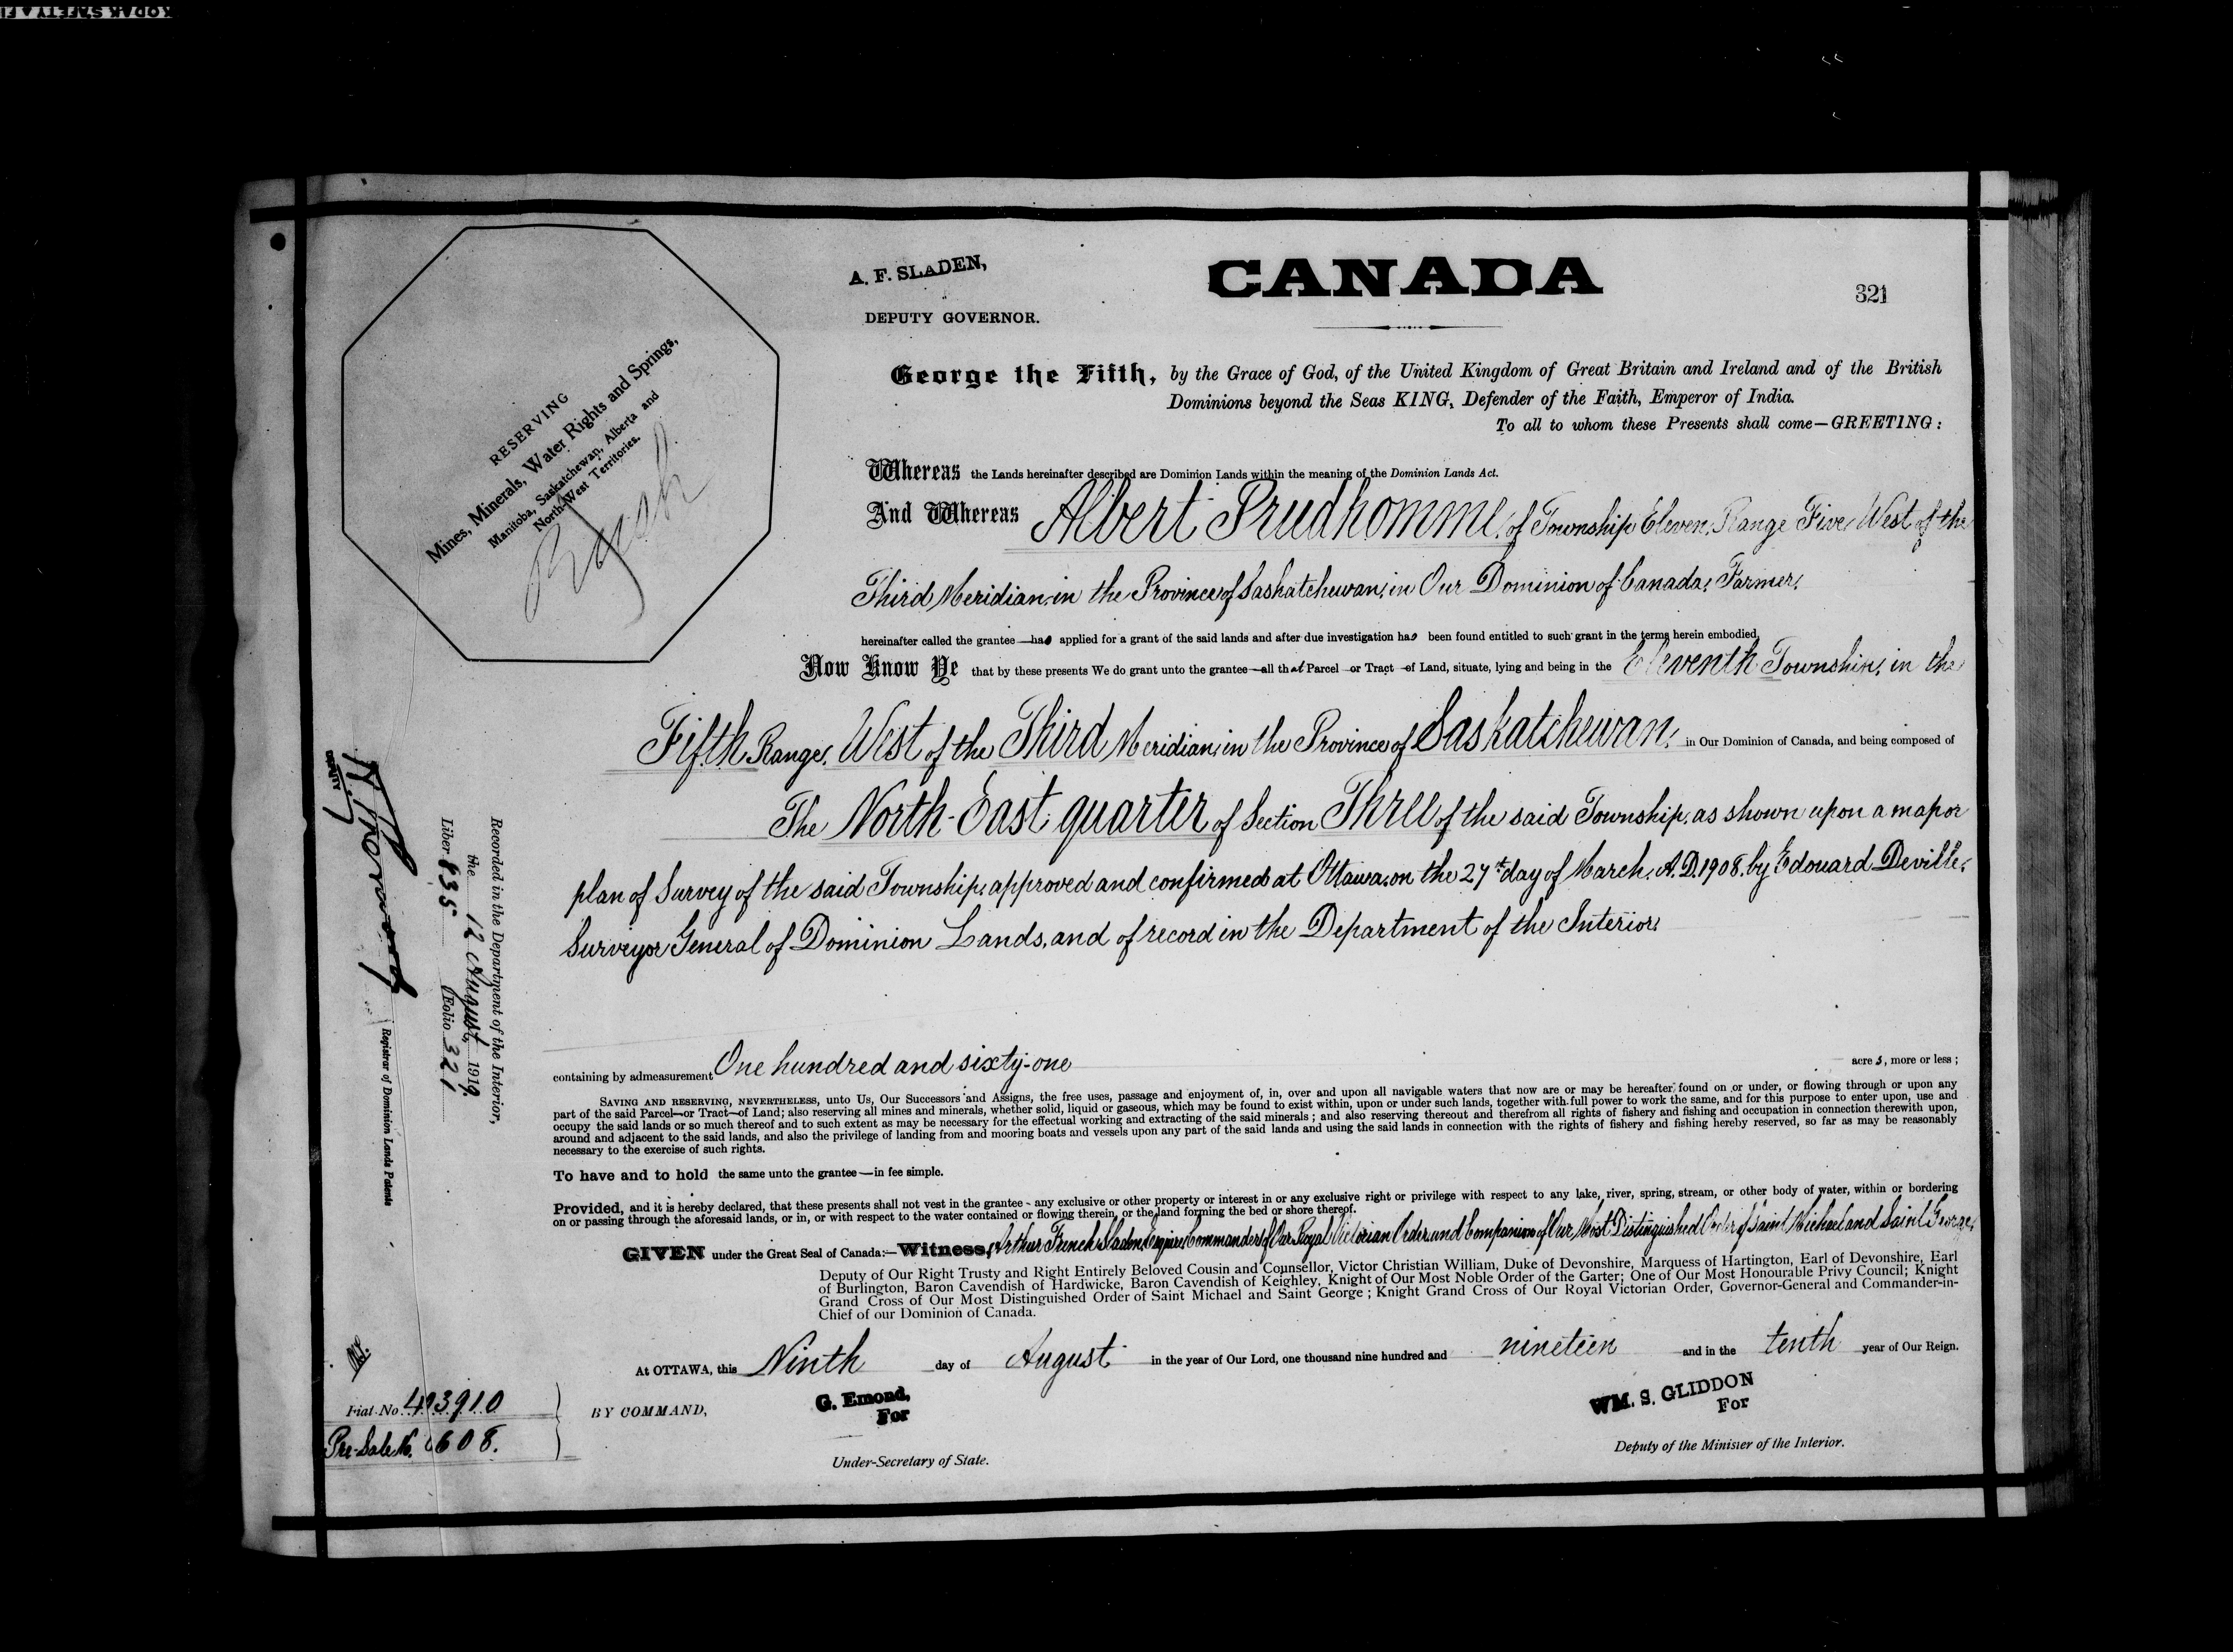 KODAK SAFETY FI
A. F. SLADEN,
DEPUTY GOVERNOR.
CANADA
321
RESERVING
Mines, Minerals, Water Rights and Springs,
Manitoba, Saskatchewan, Alberta and
North-West Territories.
George the Fifth, by the Grace of God, of the United Kingdom of Great Britain and Ireland and of the British
Dominions beyond the Seas KING, Defender of the Faith, Emperor of India.
To all to whom these Presents shall come—GREETING:
Whereas the Lands hereinafter described are Dominion Lands within the meaning of the Dominion Lands Act.
And Whereas Albert Prudhomme, of Township Eleven, Range Five, West of the
Third Meridian, in the Province of Saskatchewan, in Our Dominion of Canada, Farmer,
hereinafter called the grantee—has applied for a grant of the said lands and after due investigation has been found entitled to such grant in the terms herein embodied,
Now Know Ye that by these presents We do grant unto the grantee—all that Parcel—or Tract—of Land, situate, lying and being in the Eleventh Township, in the
Fifth Range, West of the Third Meridian, in the Province of Saskatchewan, in Our Dominion of Canada, and being composed of
The North-East quarter of Section Three of the said Township, as shown upon a map or
plan of Survey of the said Township, approved and confirmed at Ottawa, on the 27th day of March, A.D. 1908, by Edouard Deville,
Surveyor General of Dominion Lands, and of record in the Department of the Interior,
containing by admeasurement One hundred and sixty-one acres, more or less;
SAVING AND RESERVING, NEVERTHELESS, unto Us, Our Successors and Assigns, the free uses, passage and enjoyment of, in, over and upon all navigable waters that now are or may be hereafter found on or under, or flowing through or upon any
part of the said Parcel—or Tract—of Land; also reserving all mines and minerals, whether solid, liquid or gaseous, which may be found to exist within, upon or under such lands, together with full power to work the same, and for this purpose to enter upon, use and
occupy the said lands or so much thereof and to such extent as may be necessary for the effectual working and extracting of the said minerals; and also reserving thereout and therefrom all rights of fishery and fishing and occupation in connection therewith upon,
around and adjacent to the said lands, and also the privilege of landing from and mooring boats and vessels upon any part of the said lands and using the said lands in connection with the rights of fishery and fishing hereby reserved, so far as may be reasonably
necessary to the exercise of such rights.
To have and to hold the same unto the grantee—in fee simple.
Provided, and it is hereby declared, that these presents shall not vest in the grantee - any exclusive or other property or interest in or any exclusive right or privilege with respect to any lake, river, spring, stream, or other body of water, within or bordering
on or passing through the aforesaid lands, or in, or with respect to the water contained or flowing therein, or the land forming the bed or shore thereof.
GIVEN under the Great Seal of Canada:—Witness, Arthur French Sladen, Esquire, Commander of Our Royal Victorian Order, and Companion of Our Most Distinguished Order of Saint Michael and Saint George,
Deputy of Our Right Trusty and Right Entirely Beloved Cousin and Counsellor, Victor Christian William, Duke of Devonshire, Marquess of Hartington, Earl of Devonshire, Earl
of Burlington, Baron Cavendish of Hardwicke, Baron Cavendish of Keighley, Knight of Our Most Noble Order of the Garter; One of Our Most Honourable Privy Council; Knight
Grand Cross of Our Most Distinguished Order of Saint Michael and Saint George; Knight Grand Cross of Our Royal Victorian Order, Governor-General and Commander-in-
Chief of our Dominion of Canada.
At OTTAWA, this Ninth day of August in the year of Our Lord, one thousand nine hundred and nineteen and in the tenth year of Our Reign.
BY COMMAND,
G. Emond,
For
Under-Secretary of State.
WM. S. GLIDDON
For
Deputy of the Minister of the Interior.
Recorded in the Department of the Interior,
the 12 August, 1919
Liber 835 Folio 321
Registrar of Dominion Lands Patents
Fiat No. 493910
Pre-Sale No. 6608.